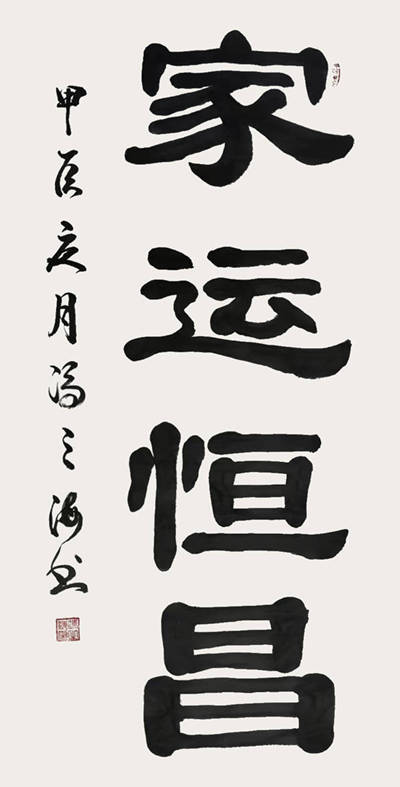 家运恒昌
甲辰夏月冯之海书